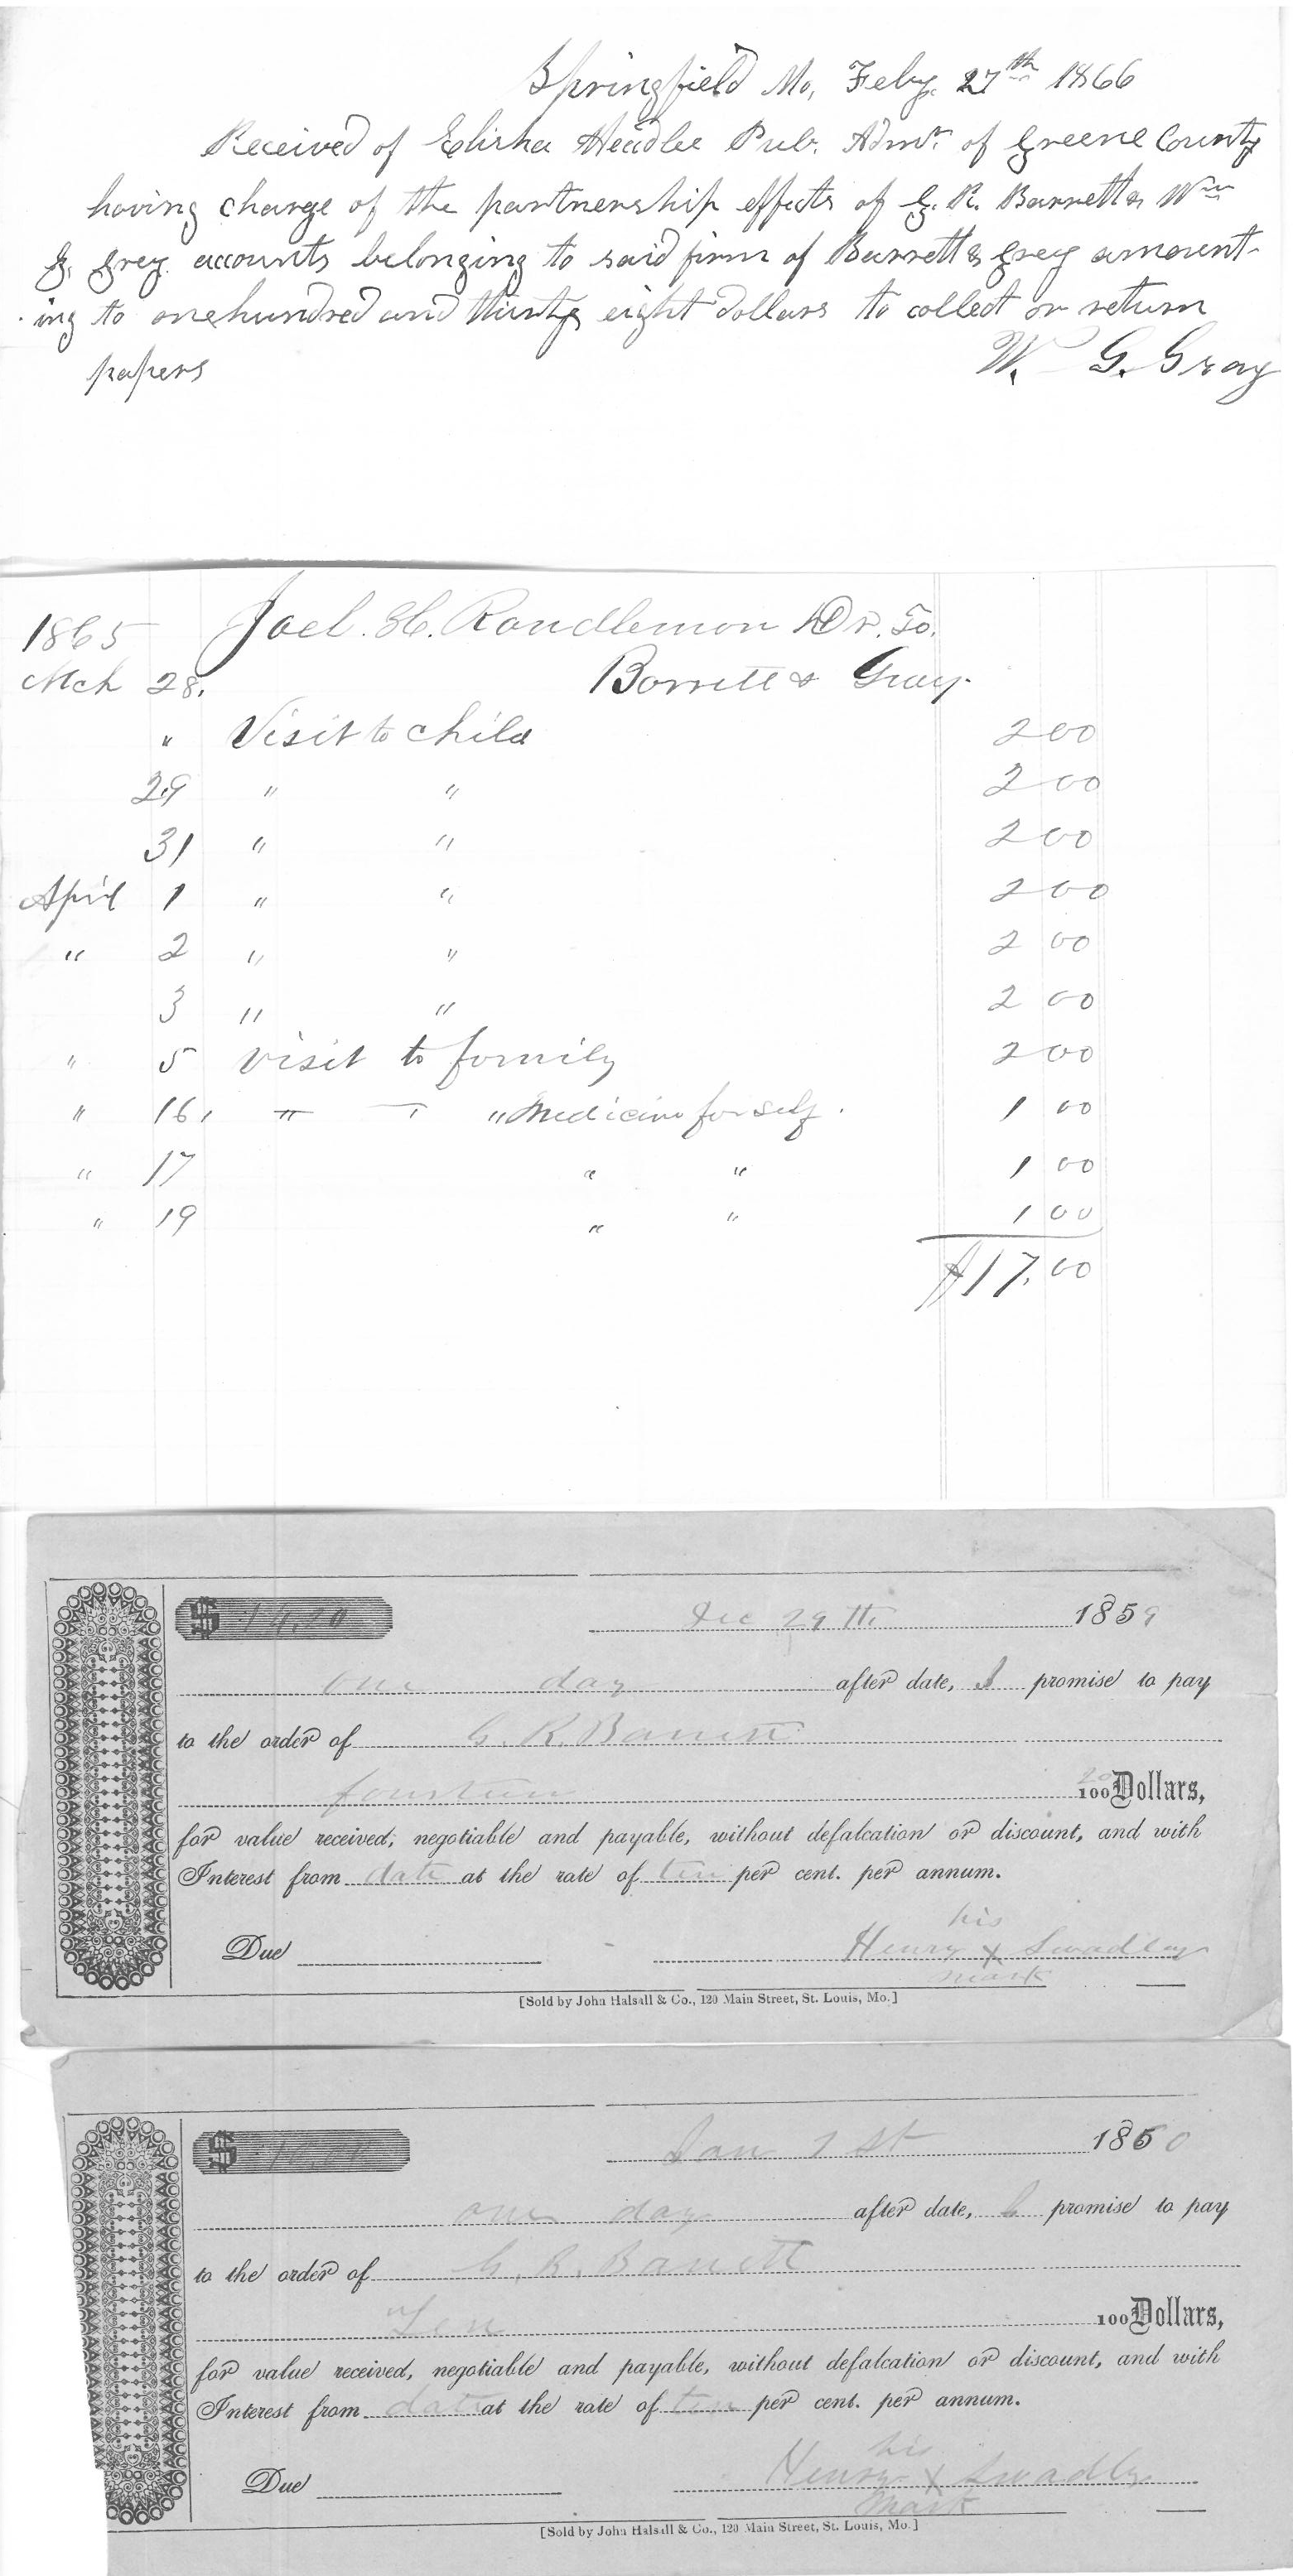 Springfield Mo, Feby. 27th 1866
Received of Elisha Headlee Pub. Admr. of Greene County
having charge of the partnership effects of G. R. Barrett & Wm
G. Grey accounts belonging to said firm of Barrett & Grey amount-
ing to one hundred and thirty eight dollars to collect or return
papers
W. G. Gray
1865 Joel. H. Randlemon Dr. To.
Mch 28. Barrett & Gray.
" Visit to child 2 00
29 " " 2 00
31 " " 2 00
April 1 " " 2 00
" 2 " " 2 00
3 " " 2 00
" 5 visit to family 2 00
" 16, " " " Medicine for self. 1 00
" 17 " " 1 00
" 19 " " 1 00
$17.00
$ 14.20 Dec 29th 1859
one day after date, I promise to pay
to the order of G. R. Barrett
fourteen 20/100 Dollars,
for value received, negotiable and payable, without defalcation or discount, and with
Interest from date at the rate of ten per cent. per annum.
his
Due Henry X Swadley
mark
[Sold by John Halsall & Co., 120 Main Street, St. Louis, Mo.]
$ Jan 1st 1860
one day after date, I promise to pay
to the order of G. R. Barrett
Ten 100 Dollars,
for value received, negotiable and payable, without defalcation or discount, and with
Interest from date at the rate of ten per cent. per annum.
his
Due Henry X Swadley
mark
[Sold by John Halsall & Co., 120 Main Street, St. Louis, Mo.]